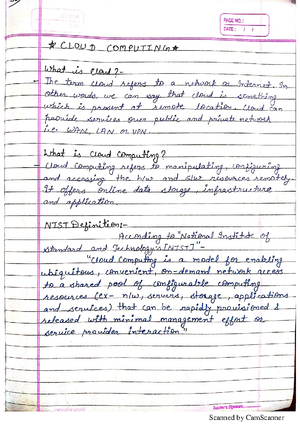 PAGE NO.:
DATE: / /
★ CLOUD COMPUTING ★
What is Cloud?-
- The term Cloud refers to a network or Internet. In
other words, we can say that cloud is something
which is present at remote location. Cloud can
provide services over public and private network
i.e. WAN, LAN or VPN.
What is Cloud Computing?
- Cloud Computing refers to manipulating, configuring
and accessing the h/w and s/w resources remotely.
It offers online data storage, infrastructure
and application.
NIST Definition:-
According to "National Institute of
Standard and Technology (NIST)"-
"Cloud Computing is a model for enabling
ubiquitous, convenient, on-demand network access
to a shared pool of configurable computing
resources (ex- n/w, servers, storage, applications
and services) that can be rapidly provisioned &
released with minimal management effort or
service provider interaction"
Teacher's Signature
Scanned by CamScanner